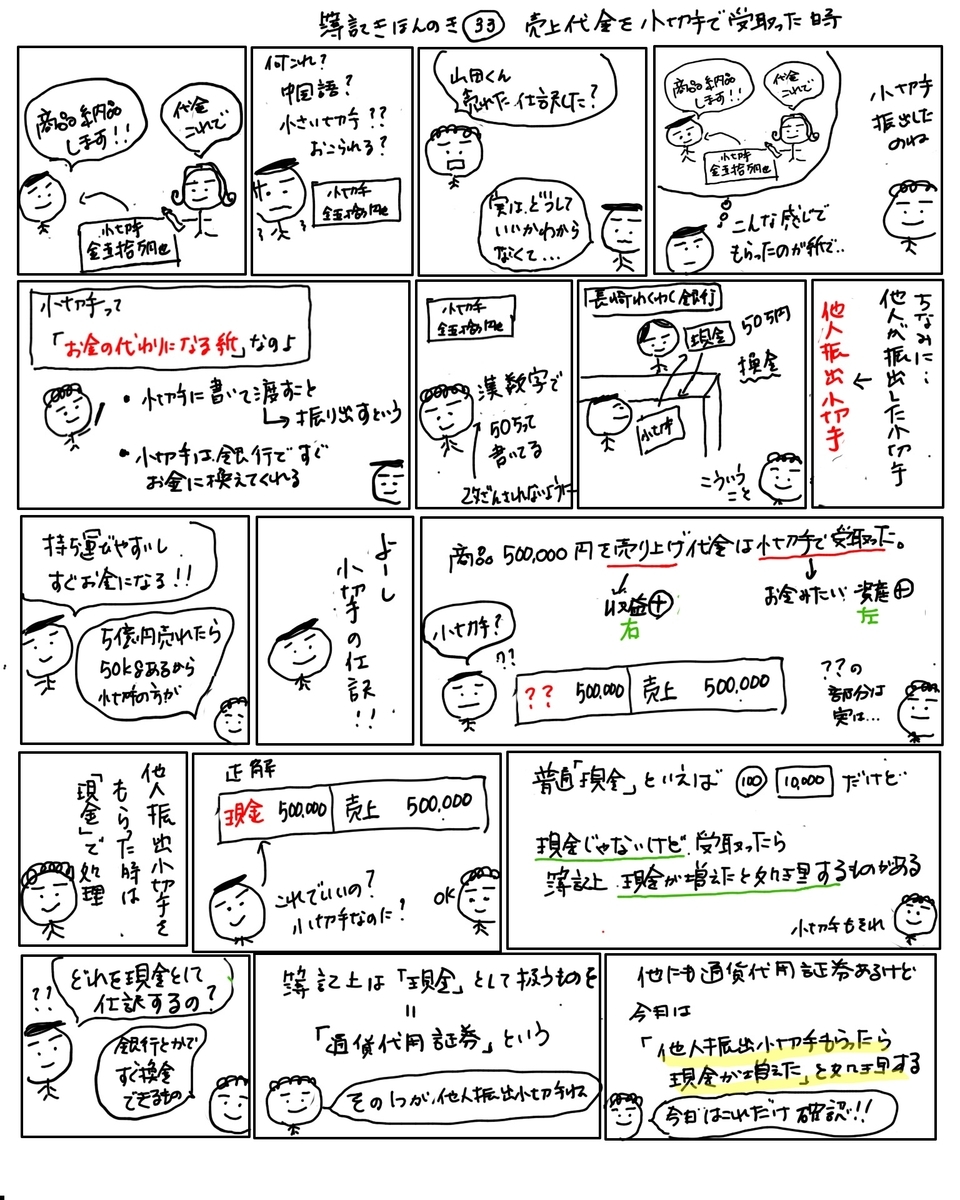 簿記きほんのき㉝ 売上代金を小切手で受取った時
商品納品
します!!
代金
これで
小切手
金五拾万円也
何これ?
中国語?
小さい切手??
おこられる?
小切手
金五拾万円也
山田くん
売れた仕訳した?
実は、どうして
いいかわから
なくて…
商品納品
します!!
代金
これで
小切手
金五拾万円也
小切手
振出した
のね
こんな感じで
もらったのが紙で…
小切手って
「お金の代わりになる紙」なのよ
・小切手に書いて渡すこと
→振り出すという
・小切手は銀行ですぐ
お金に換えてくれる
小切手
金五拾万円也
漢数字で
50万って
書いてる
改ざんされないように
長崎わくわく銀行
現金
50万円
換金
小切手
こういう
こと
ちなみに…
他人が振出した小切手
←
他人振出小切手
持ち運びやすいし
すぐお金になる!!
5億円売れたら
50kgあるから
小切手の方が
よーし
小切手の仕訳!!
商品 500,000 円を売り上げ代金は小切手で受取った。
収益⊕
右
お金みたい 資産⊕
左
小切手?
??
?? 500,000 売上 500,000
??の
部分は
実は…
他人振出小切手を
もらった時は
「現金」で処理
正解
現金 500,000 売上 500,000
これでいいの?
小切手なのに?
OK
普通「現金」といえば 100 10,000 だけど
現金じゃないけど受取ったら
簿記上 現金が増えたと処理するものがある
小切手もそれ
どれを現金として
仕訳するの?
??
銀行とかで
すぐ換金
できるもの
簿記上は「現金」として扱うものを
=
「通貨代用証券」という
その1つが、他人振出小切手ね
他にも通貨代用証券あるけど
今日は
「他人振出小切手もらったら
現金が増えた」と処理する
今日はこれだけ確認!!